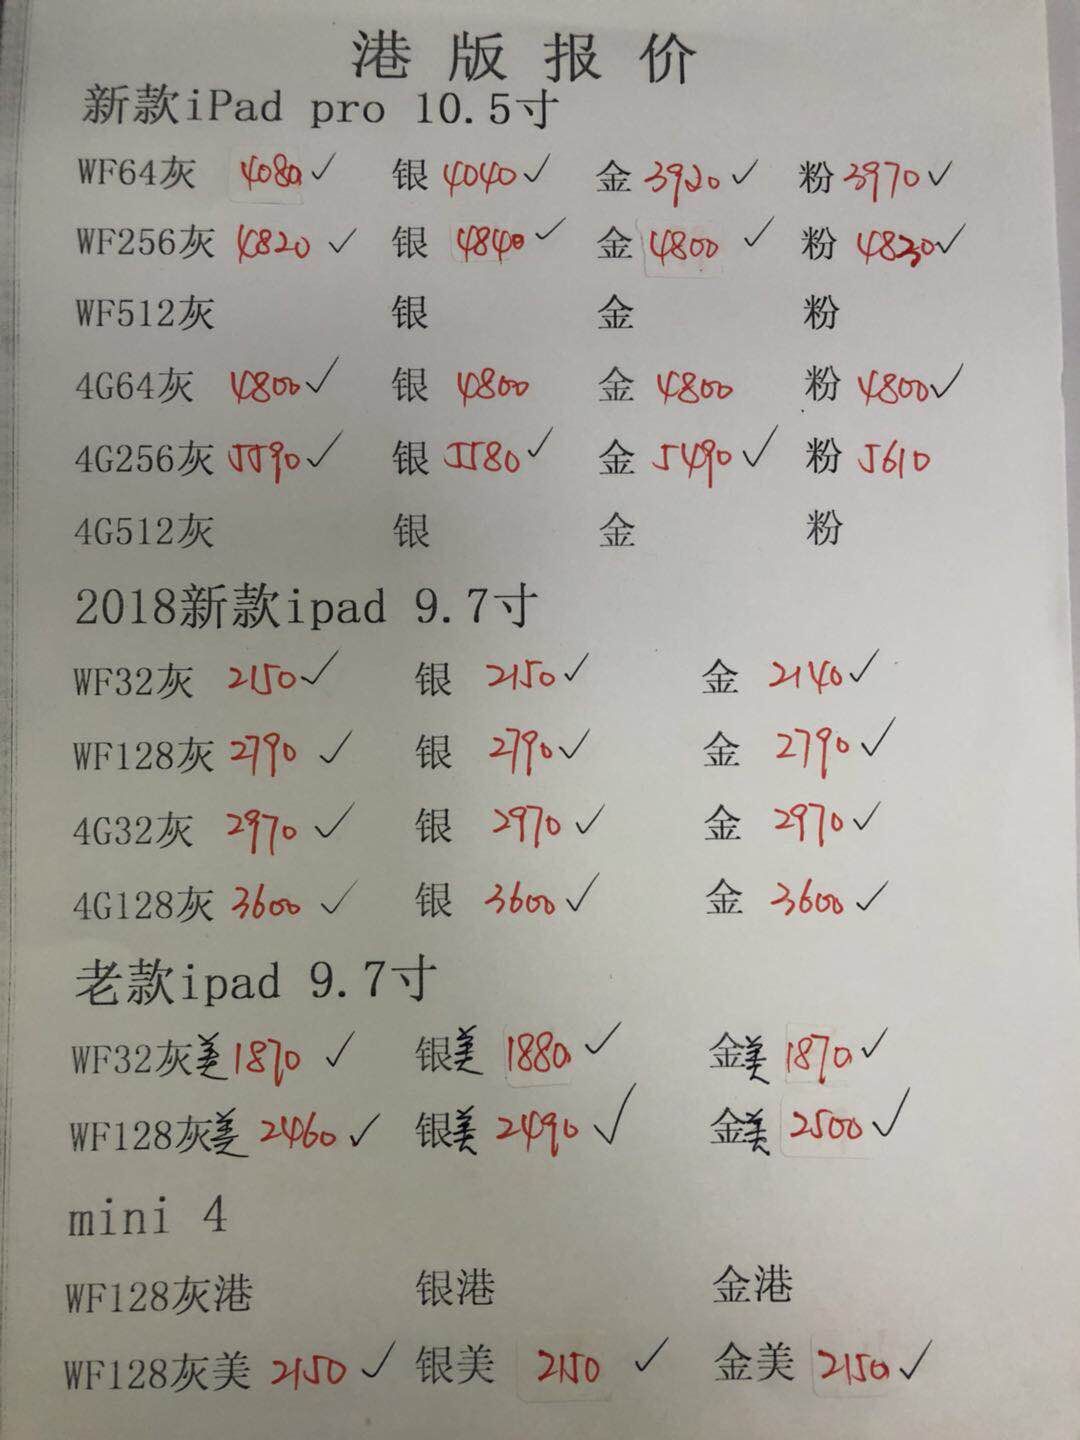 港版报价
新款iPad pro 10.5寸
WF64灰 4080✓ 银 4040✓ 金 3920✓ 粉 3970✓
WF256灰 4820✓ 银 4840✓ 金 4800✓ 粉 4830✓
WF512灰 银 金 粉
4G64灰 4800✓ 银 4800 金 4800 粉 4800✓
4G256灰 5590✓ 银 5580✓ 金 5490✓ 粉 5610
4G512灰 银 金 粉
2018新款ipad 9.7寸
WF32灰 2150✓ 银 2150✓ 金 2140✓
WF128灰 2790✓ 银 2790✓ 金 2790✓
4G32灰 2970✓ 银 2970✓ 金 2970✓
4G128灰 3600✓ 银 3600✓ 金 3600✓
老款ipad 9.7寸
WF32灰美 1870✓ 银美 1880✓ 金美 1870✓
WF128灰美 2460✓ 银美 2490✓ 金美 2500✓
mini 4
WF128灰港 银港 金港
WF128灰美 2150✓ 银美 2150✓ 金美 2150✓